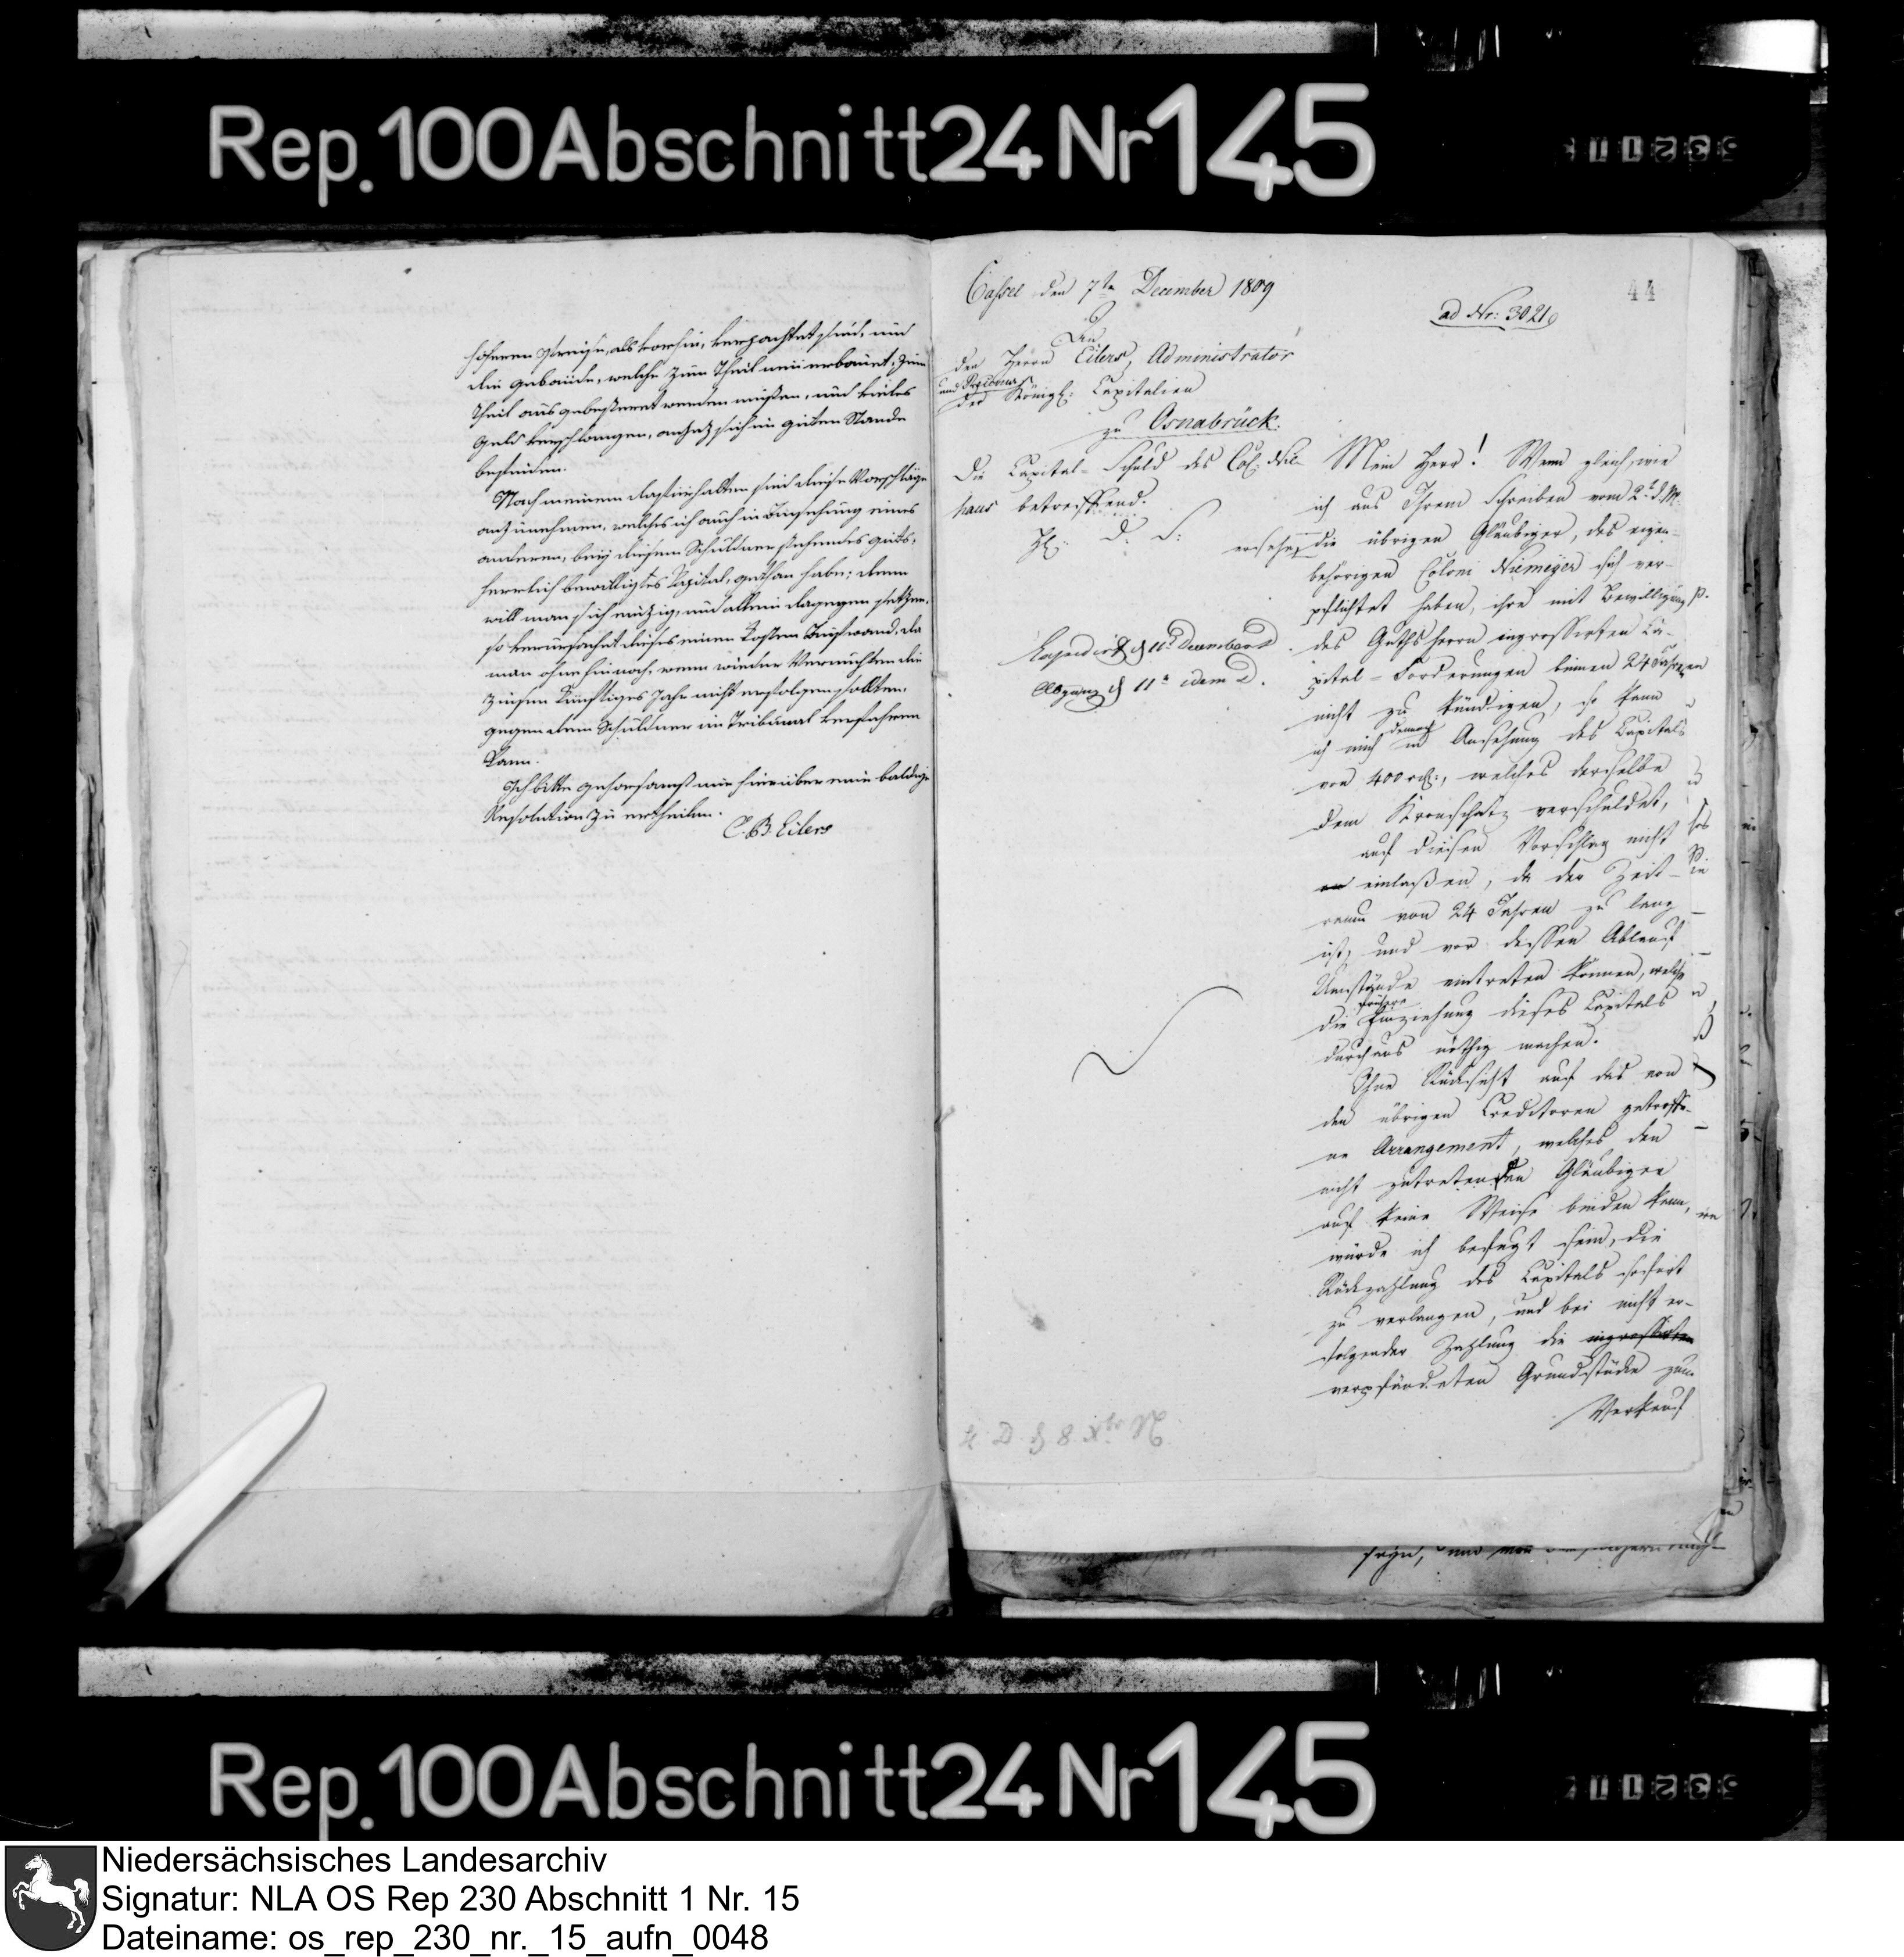 Rep. 100 Abschnitt 24 Nr 145
höheren Preise, als vorhin, verpachtet sind, und
die Gebäude, welche zum Theil neu erbauet, zum
Theil ausgebessert werden müßen, und vieles
Geld verschlangen, anjetzt sich in guten Stande
befinden.
Nach meinem dafürhalten sind diese Vorschläge
anzunehmen, welches ich auch in Ansehung eines
anderen, bey diesem Schuldner stehendes guts-
herrlich bewilligtes Capital, gethan habe; denn
will man sich einzig, und allein dagegen setzen,
so verursachet dieses einen Kosten Aufwand, da
man ohnehin noch, wenn wieder Vermuthen die
Zinsen künftiges Jahr nicht erfolgen sollten,
gegen dem Schuldner im Tribunal verfahren
kann.
Ich bitte gehorsamst mir hierüber eine baldige
Resolution zu ertheilen.
C. B. Eilers
44
Cassel den 7ten December 1809
ad Nr: 3021
An
den Herrn Eilers, Administrator
und Receveur
der Königl: Capitalien
zu Osnabrück.
Die Capital-Schuld des Col. Nie-
haus betreffend.
D. S.
Expedirt d 11t December
Abgang d 11t idem
Mein Herr! Wenn gleich, wie
ich aus Ihrem Schreiben vom 2t d. M.
ersehe, die übrigen Gläubiger, des eigen-
behörigen Coloni Niemeyer sich ver-
pflichtet haben, ihre mit Bewilligung
des Guthsherrn ingrossirten Ca-
pital-Forderungen binnen 24 Jahren
nicht zu kündigen, so kann
ich mich dennoch in Ansehung des Capitals
von 400 rth:, welches derselbe
dem Kronschatz verschuldet,
auf diesen Vorschlag nicht
einlaßen, da der Zeit-
raum von 24 Jahren zu lang
ist, und vor dessen Ablauf
Umstände eintreten können, welche
die frühere Einziehung dieses Capitals
durchaus nöthig machen.
Ohne Rücksicht auf das von
den übrigen Creditoren getroffe-
ne Arrangement, welches den
nicht zutretenden Gläubiger
auf keine Weise binden kann,
würde ich befugt sein, die
Rückzahlung des Capitals sofort
zu verlangen, und bei nicht er-
folgender Zahlung die ingrossirten
verpfändeten Grundstücke zum
Verkauf
seyn, und
Rep. 100 Abschnitt 24 Nr 145
Niedersächsisches Landesarchiv
Signatur: NLA OS Rep 230 Abschnitt 1 Nr. 15
Dateiname: os_rep_230_nr._15_aufn_0048